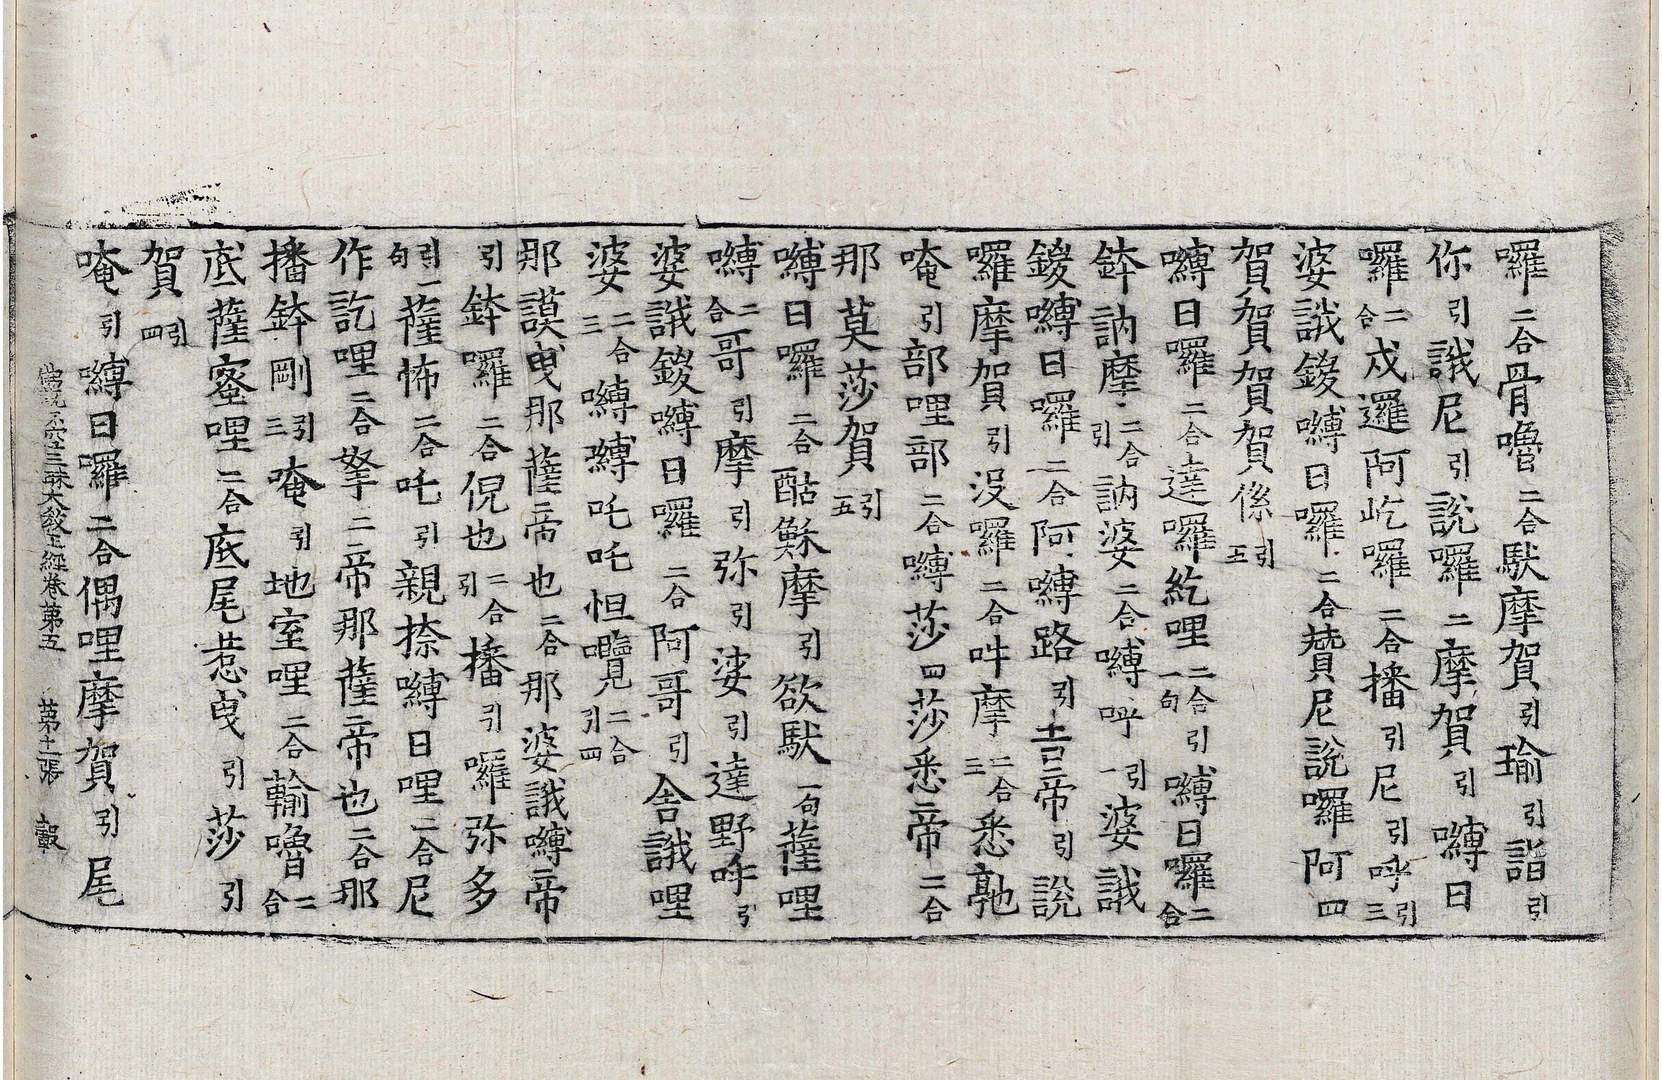 囉二合骨嚕二合馱摩賀引瑜引詣引
你引誐尼引説囉二摩賀引嚩日
囉二合戍邏阿屹囉二合播引尼引呼引三
婆誐鍐嚩日囉二合贊尼説囉阿四
賀賀賀賀係引五
嚩日囉二合達囉紇哩二合引一句嚩日囉二合
鉢訥摩二合引訥婆二合嚩呼引一婆誐
鍐嚩日囉二合阿嚩路引吉帝引説
囉摩賀引没囉二合吽摩二合三悉
唵引部哩部二合嚩莎四莎悉帝二合
那莫莎賀引五
嚩日囉二合酤穌摩引欲馱一句薩哩
嚩二合哥引摩引弥引婆引達野呼引
婆誐鍐嚩日囉二合阿哥引舍誐哩
婆二合三嚩嚩吒吒怛嚂二合引四
那謨曳那薩帝也二合那婆誐嚩帝
引鉢囉二合倪也二合引播引囉弥多
引一句薩怖二合吒引親捺嚩日哩二合尼
作訖哩二合拏二帝那薩帝也二合那
播鉢剛引三唵引地室哩二合輸嚕二合
底薩蜜哩二合底尾惹曳引莎引
賀引四
唵引嚩日囉二合偶哩摩賀引尾
經卷第五 第十二張 轂